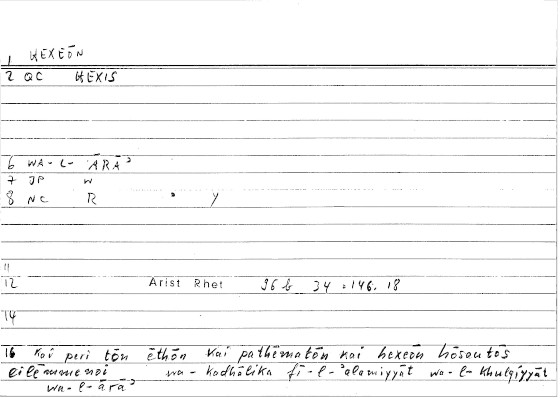 1 HEXEŌN
2 QC HEXIS
6 WA-L-ĀRĀʾ
7 JP W
8 NC R ʾ Y
11
12 Arist Rhet 96b 34 = 146.18
14
16 kai peri tōn ēthōn kai pathēmatōn kai hexeōn hōsautōs
eilēmmenoi wa-kadhālika fī-l-ʾalamiyyāt wa-l-khulqiyyāt
wa-l-ārāʾ